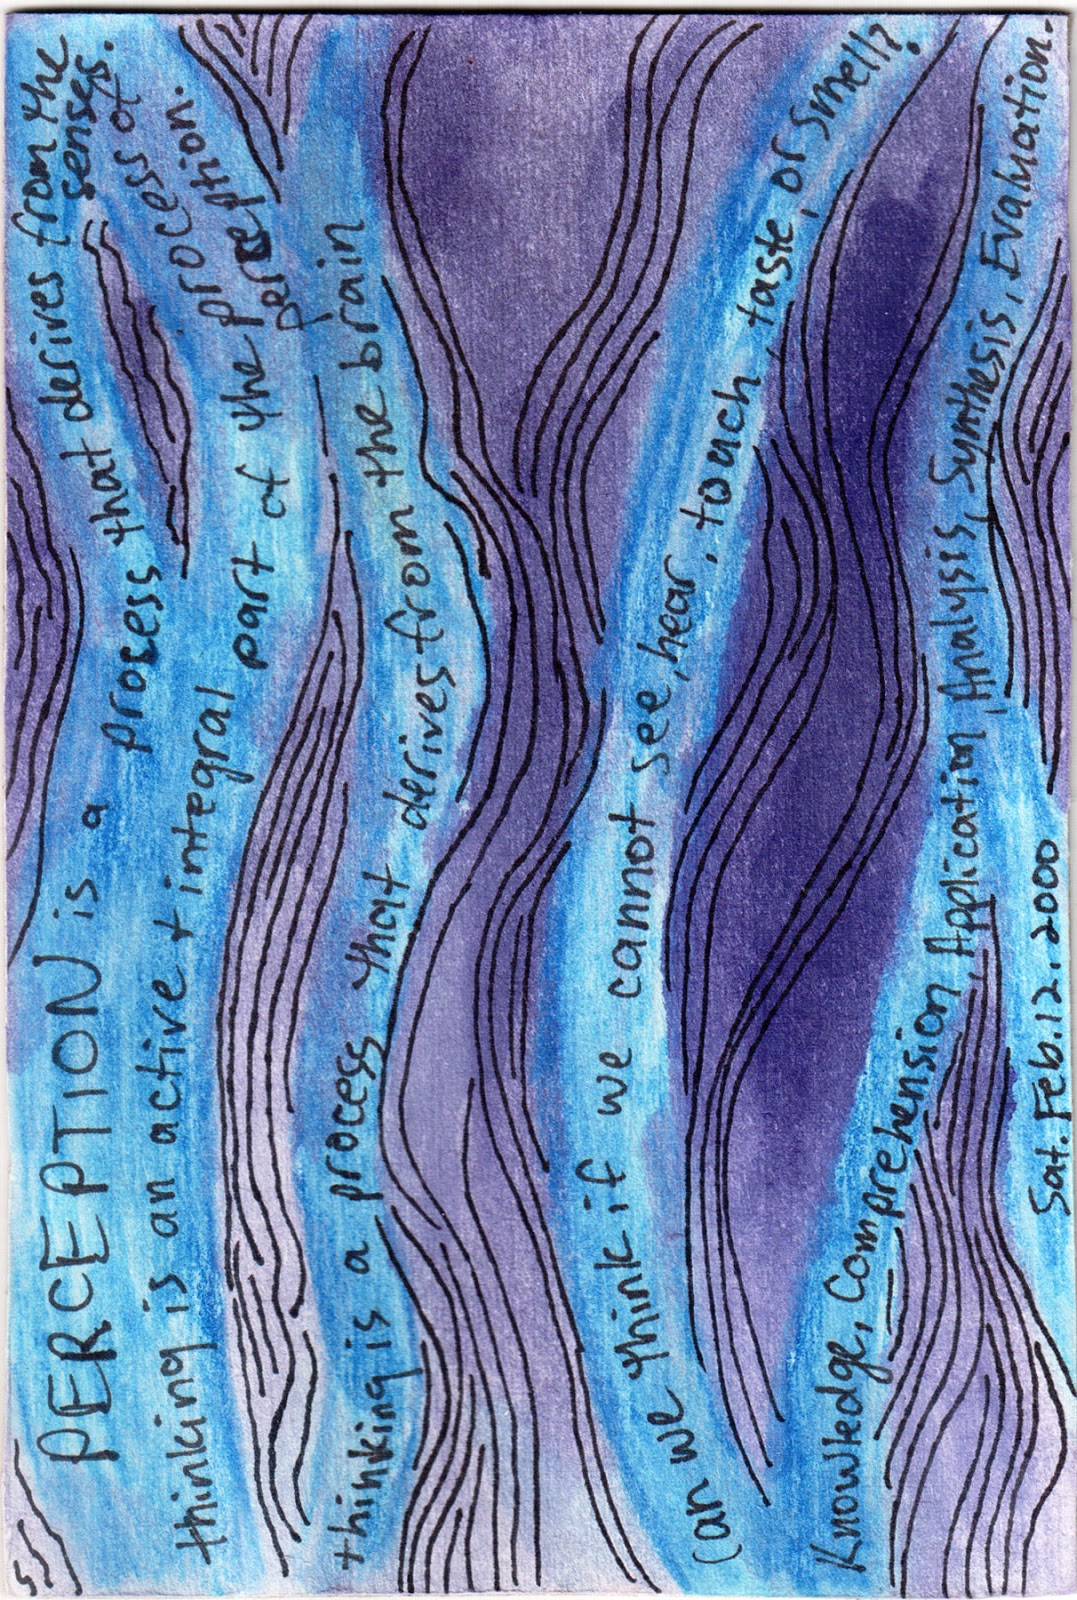 PERCEPTION is a process that derives from the senses.
thinking is an active + integral part of the process of perception.
thinking is a process that derives from the brain
Can we think if we cannot see, hear, touch, taste, or smell?
Knowledge, Comprehension Application, Analysis, Synthesis, Evaluation.
Sat. Feb. 12. 2000